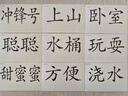 冲锋号 上山 卧室
聪聪 水桶 玩耍
甜蜜蜜 方便 浇水